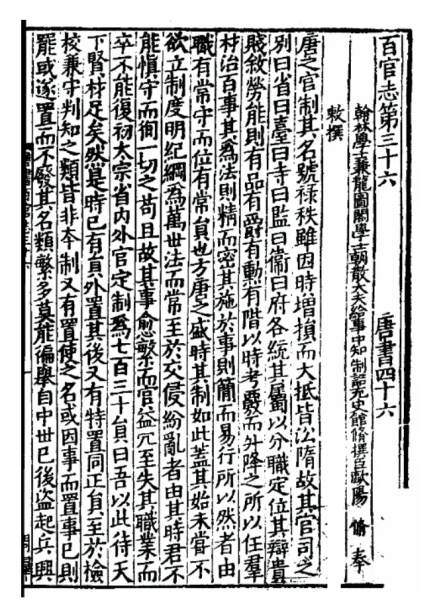 百官志第三十六　唐書四十六
翰林學士兼龍圖閣學士朝散大夫給事中知制誥充史館脩撰臣歐陽　脩　奉
敕撰
唐之官制其名號祿秩雖因時增損而大抵皆沿隋故其官司之
别曰省曰臺曰寺曰監曰衞曰府各統其屬以分職定位其辯貴
賤敘勞能則有品有爵有勳有階以時考覈而升降之所以任羣
材治百事其爲法則精而密其施於事則簡而易行所以然者由
職有常守而位有常員也方唐之盛時其制如此蓋其始未嘗不
欲立制度明紀綱爲萬世法而常至於交侵紛亂者由其時君不
能慎守而徇一切之苟且故其事愈繁而官益冗至失其職業而
卒不能復初太宗省内外官定制爲七百三十員曰吾以此待天
下賢材足矣然是時已有員外置其後又有特置同正員至於檢
校兼守判知之類皆非本制又有置使之名或因事而置事已則
罷或遂置而不廢其名類繁多莫能徧舉自中世已後盗起兵興